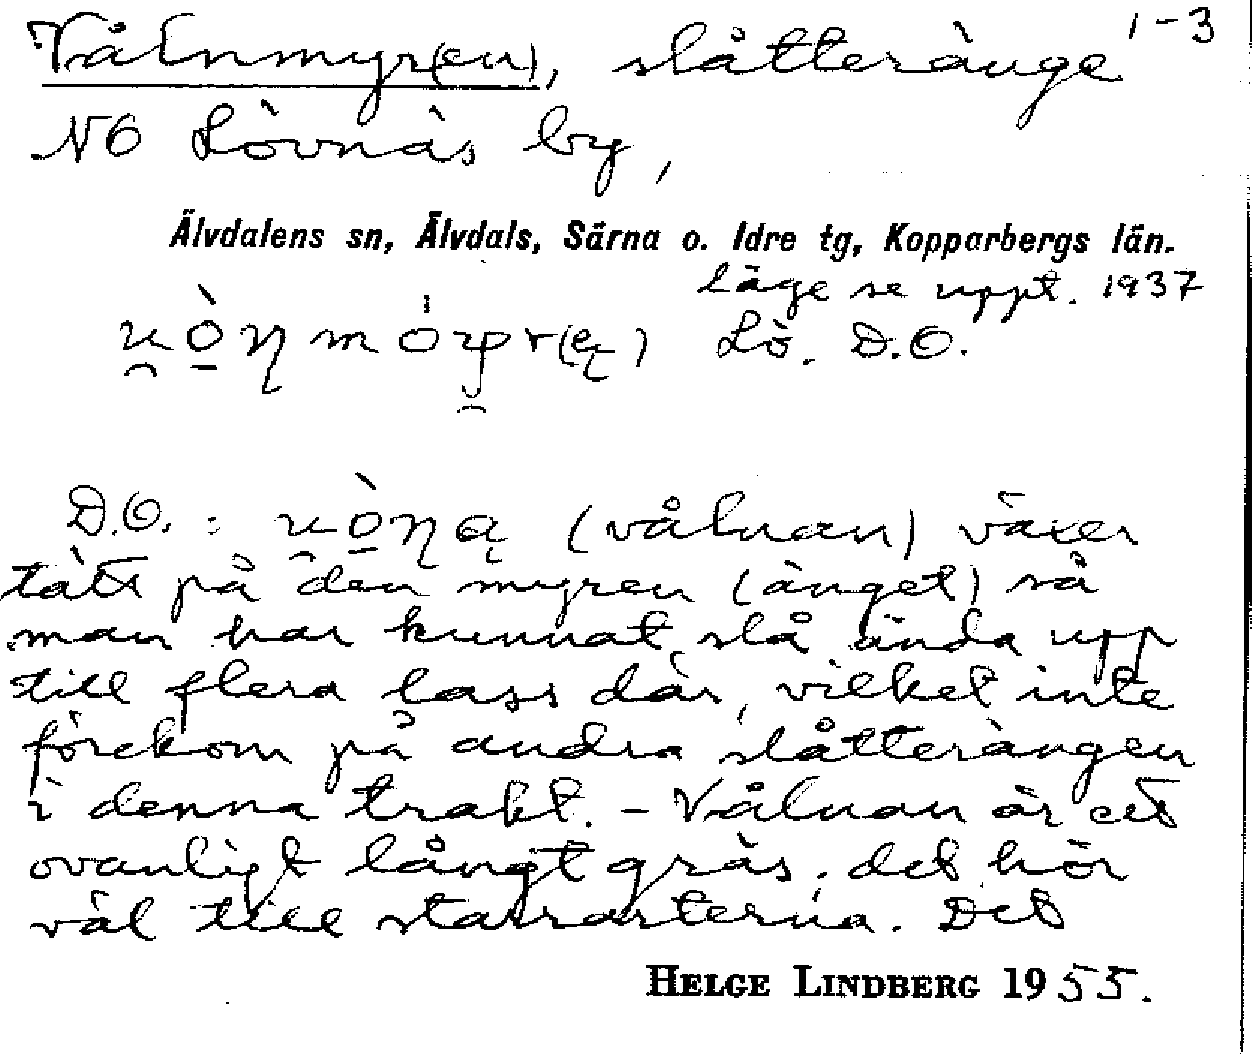 Vålnmyr(en), slåtteränge 1-3
NO Lövnäs by,
Älvdalens sn, Älvdals, Särna o. Idre tg, Kopparbergs län.
läge se uppt. 1937
Lö. D.O.
D.O. : (vålnan) växer
tätt på den myren (änget) så
man har kunnat slå ända upp
till flera lass där, vilket inte
förekom på andra slåtterängen
i denna trakt. - Vålnan är ett
ovanligt långt gräs; det hör
väl till starrarterna. Det
HELGE LINDBERG 1955.